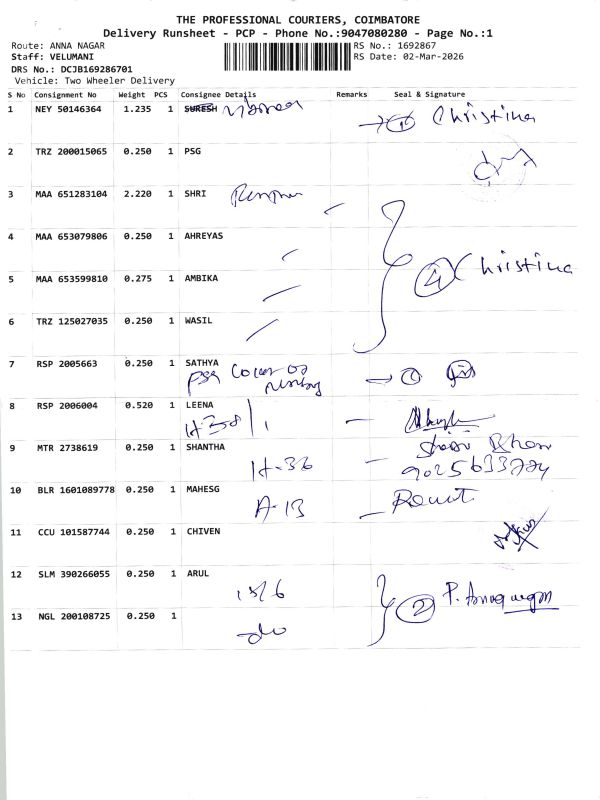 THE PROFESSIONAL COURIERS, COIMBATORE
Delivery Runsheet - PCP - Phone No.:9047080280 - Page No.:1
Route: ANNA NAGAR RS No.: 1692867
Staff: VELUMANI RS Date: 02-Mar-2026
DRS No.: DCJB169286701
Vehicle: Two Wheeler Delivery
S No Consignment No Weight PCS Consignee Details Remarks Seal & Signature
1 NEY 50146364 1.235 1 SURESH 1 Christina
2 TRZ 200015065 0.250 1 PSG
3 MAA 651283104 2.220 1 SHRI
4 MAA 653079806 0.250 1 AHREYAS
5 MAA 653599810 0.275 1 AMBIKA 4 Christina
6 TRZ 125027035 0.250 1 WASIL
7 RSP 2005663 0.250 1 SATHYA
PSG College of Nursing
8 RSP 2006004 0.520 1 LEENA
9 MTR 2738619 0.250 1 SHANTHA
H-36
10 BLR 1601089778 0.250 1 MAHESG
A-13
11 CCU 101587744 0.250 1 CHIVEN
12 SLM 390266055 0.250 1 ARUL
2
13 NGL 200108725 0.250 1
do